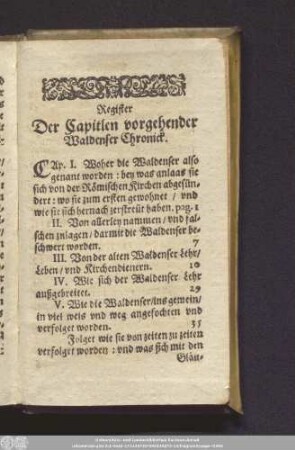 Register
Der Capitlen vorgehender
Waldenser Chronick.
CAp. I. Woher die Waldenser also
genant worden: bey was anlaas sie
sich von der Römischen Kirchen abgesün-
dert: wo sie zum ersten gewohnet / vnd
wie sie sich hernach zerstreüt haben. pag. 1
II. Von allerley nammen / vnd fal-
schen zulagen / darmit die Waldenser be-
schwert worden. 7
III. Von der alten Waldenser Lehr/
Leben / vnd Kirchendienern. 10
IV. Wie sich der Waldenser Lehr
außgebreitet. 29
V. Wie die Waldenser / ins gemein /
in viel weis vnd weg angefochten vnd
verfolget worden. 35
Folget wie sie von zeiten zu zeiten
verfolget worden: vnd was sich mit den
Gläu-